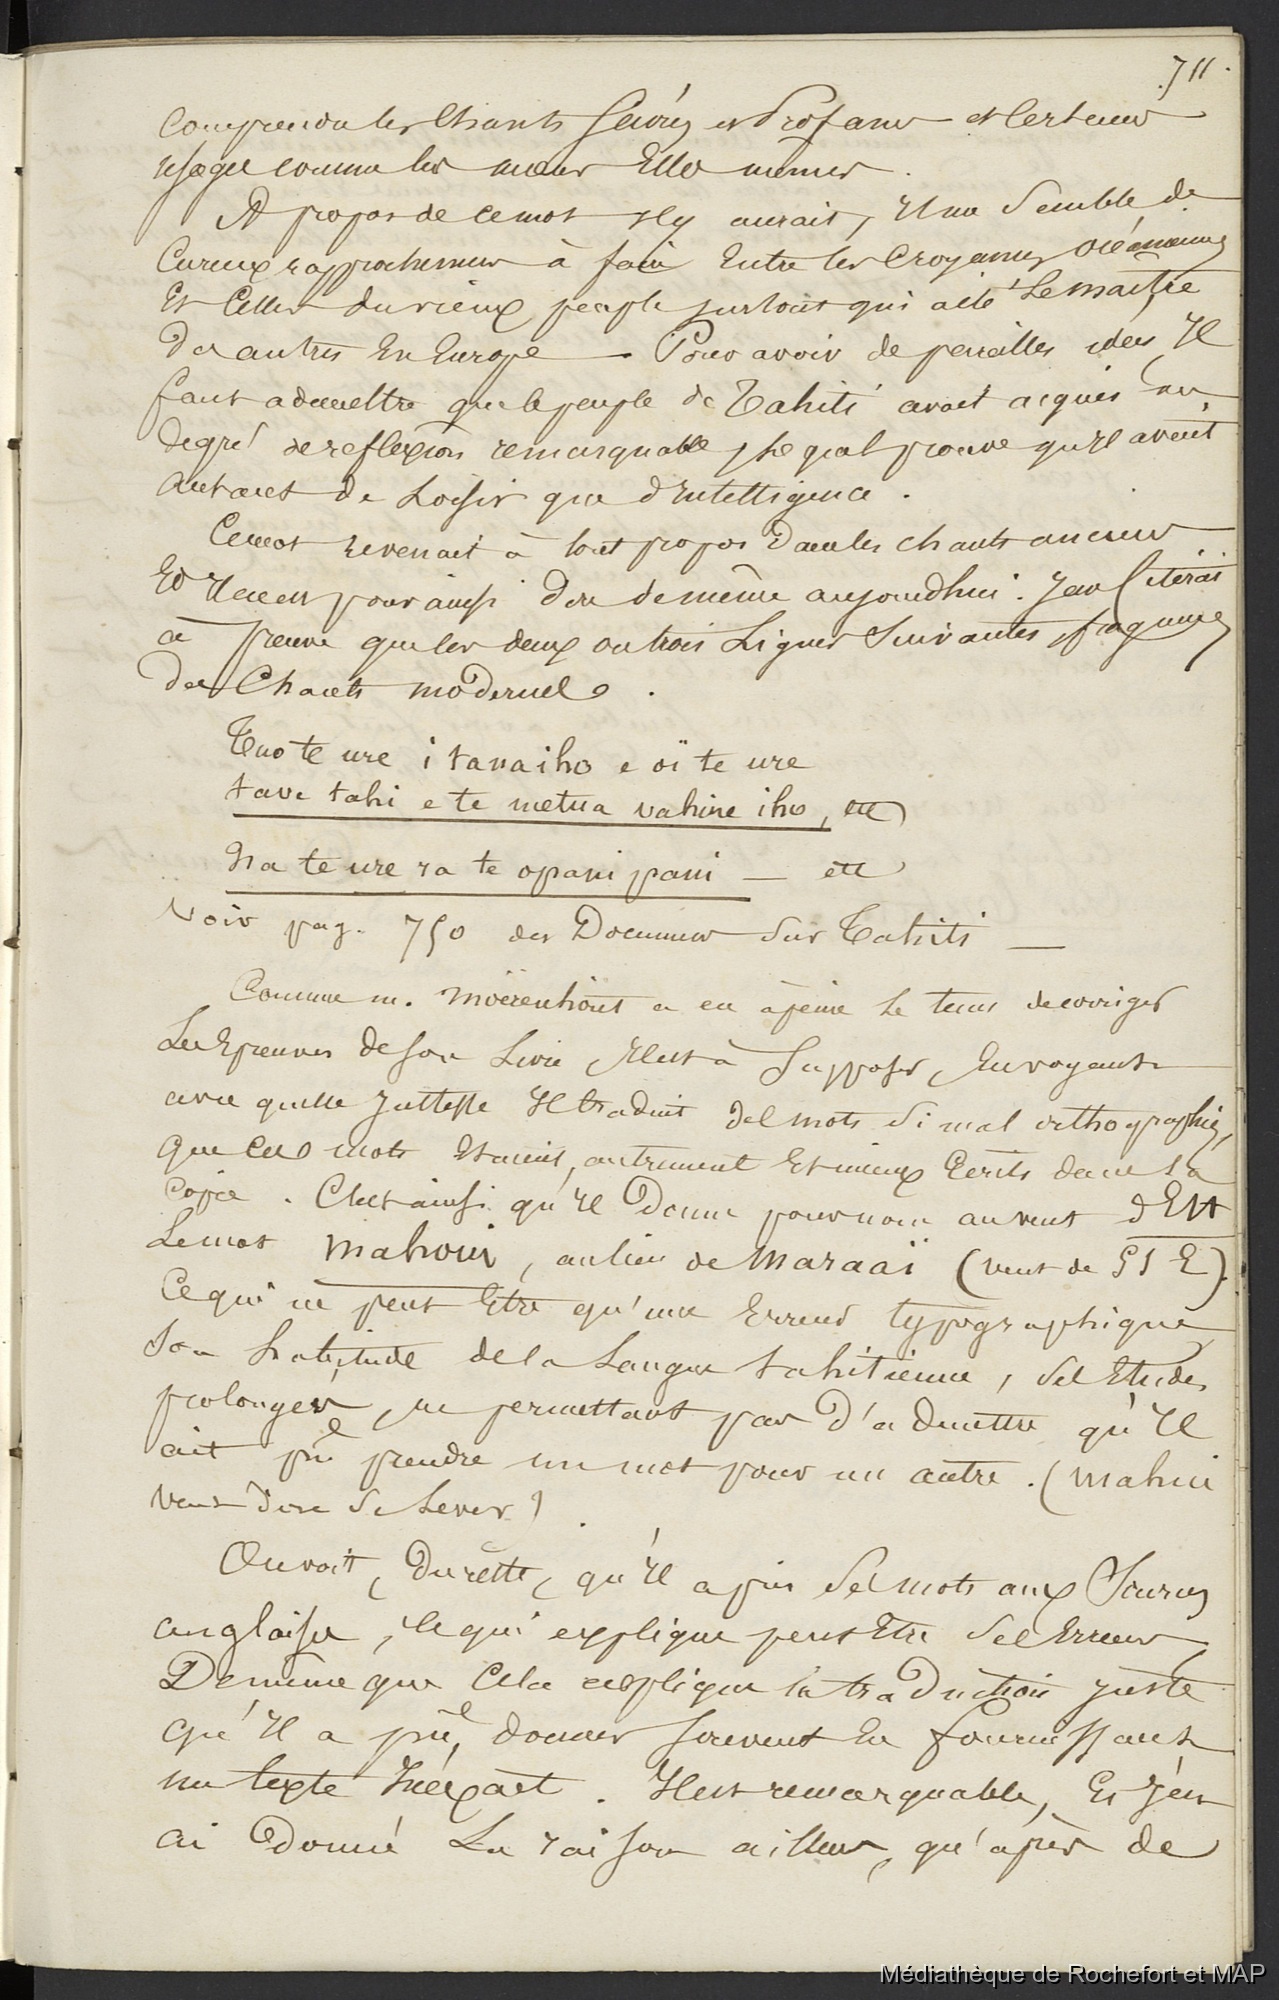 711.
comprendre les Chants Sacrés et Profanes et Certains
usages comme les mœurs Elles mêmes.
A propos de ce mot Il y aurait, Il me Semble de
Curieux rapprochemens à faire Entre les Croyances Océaniennes
Et Celles du vieux peuple surtout qui a été le maître
Des autres En Europe — Pour avoir de pareilles idées Il
faut admettre que le peuple de Tahiti avait acquis un
degré de reflexion remarquable, ce qui prouve qu'Il avait
Autant de Loisir que d'Intelligence.
Ce mot revenait à tout propos Dans les chants anciens
Et Il en est pour ainsi dire de même aujourdhui. Je n'en Citerai
à preuve que les deux ou trois Lignes Suivantes, fragmens
des Chants modernes.
Tuo te ure i tanaiho e oï te ure
tave tahi e te metua vahine iho, etc
Na te ure ra te opani pani — etc
Voir pag. 750 des Documens Sur Tahiti —
Comme m. Moërenhout a eu à peine le tems de corriger
Les Epreuves de Son Livre, Il est à Supposer, En voyant
avec quelle justesse Il traduit des mots Si mal orthographiés,
Que Ces mots Etaient autrement Et mieux Ecrits dans Sa
Copie. C'est ainsi qu'Il Donne pour nom au vent d'Est
Le mot Mahoui, au lieu de Maraaï (vent de SSE).
Ce qui ne peut Etre qu'une Erreur typographique
Son habitude de la Langue tahitienne, Ses Etudes
prolongées, ne permettant pas D'admettre qu'Il
ait pu prendre un mot pour un autre. (Mahui
veut dire Se Lever)
On voit, Du reste, qu'Il a pris Ses mots aux Sources
anglaises, Ce qui explique peut Etre Ses Erreurs
De même que Cela explique la traduction juste
qu'Il a pu donner souvent En fournissant
un texte Inexact. Il est remarquable, Et j'en
ai Donné La raison ailleurs, qu'après de
Médiathèque de Rochefort et MAP